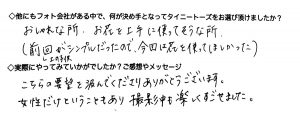 ◇他にもフォト会社がある中で、何が決め手となってタイニートーズをお選び頂けましたか?
おしゃれな所、お花を上手に使ってそうな所、
(前回がシンプルだったので、今回は花を使ってほしかった)
上の子供
◇実際にやってみていかがでしたか?ご感想やメッセージ
こちらの要望を汲んでくださりありがとうございます。
女性だけということもあり撮影中も楽しくすごせました。